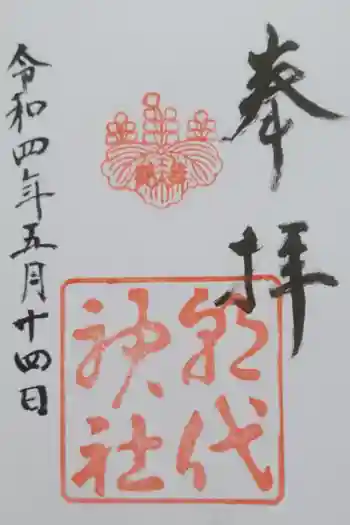 奉拝
朝代
神社
令和四年五月廿四日